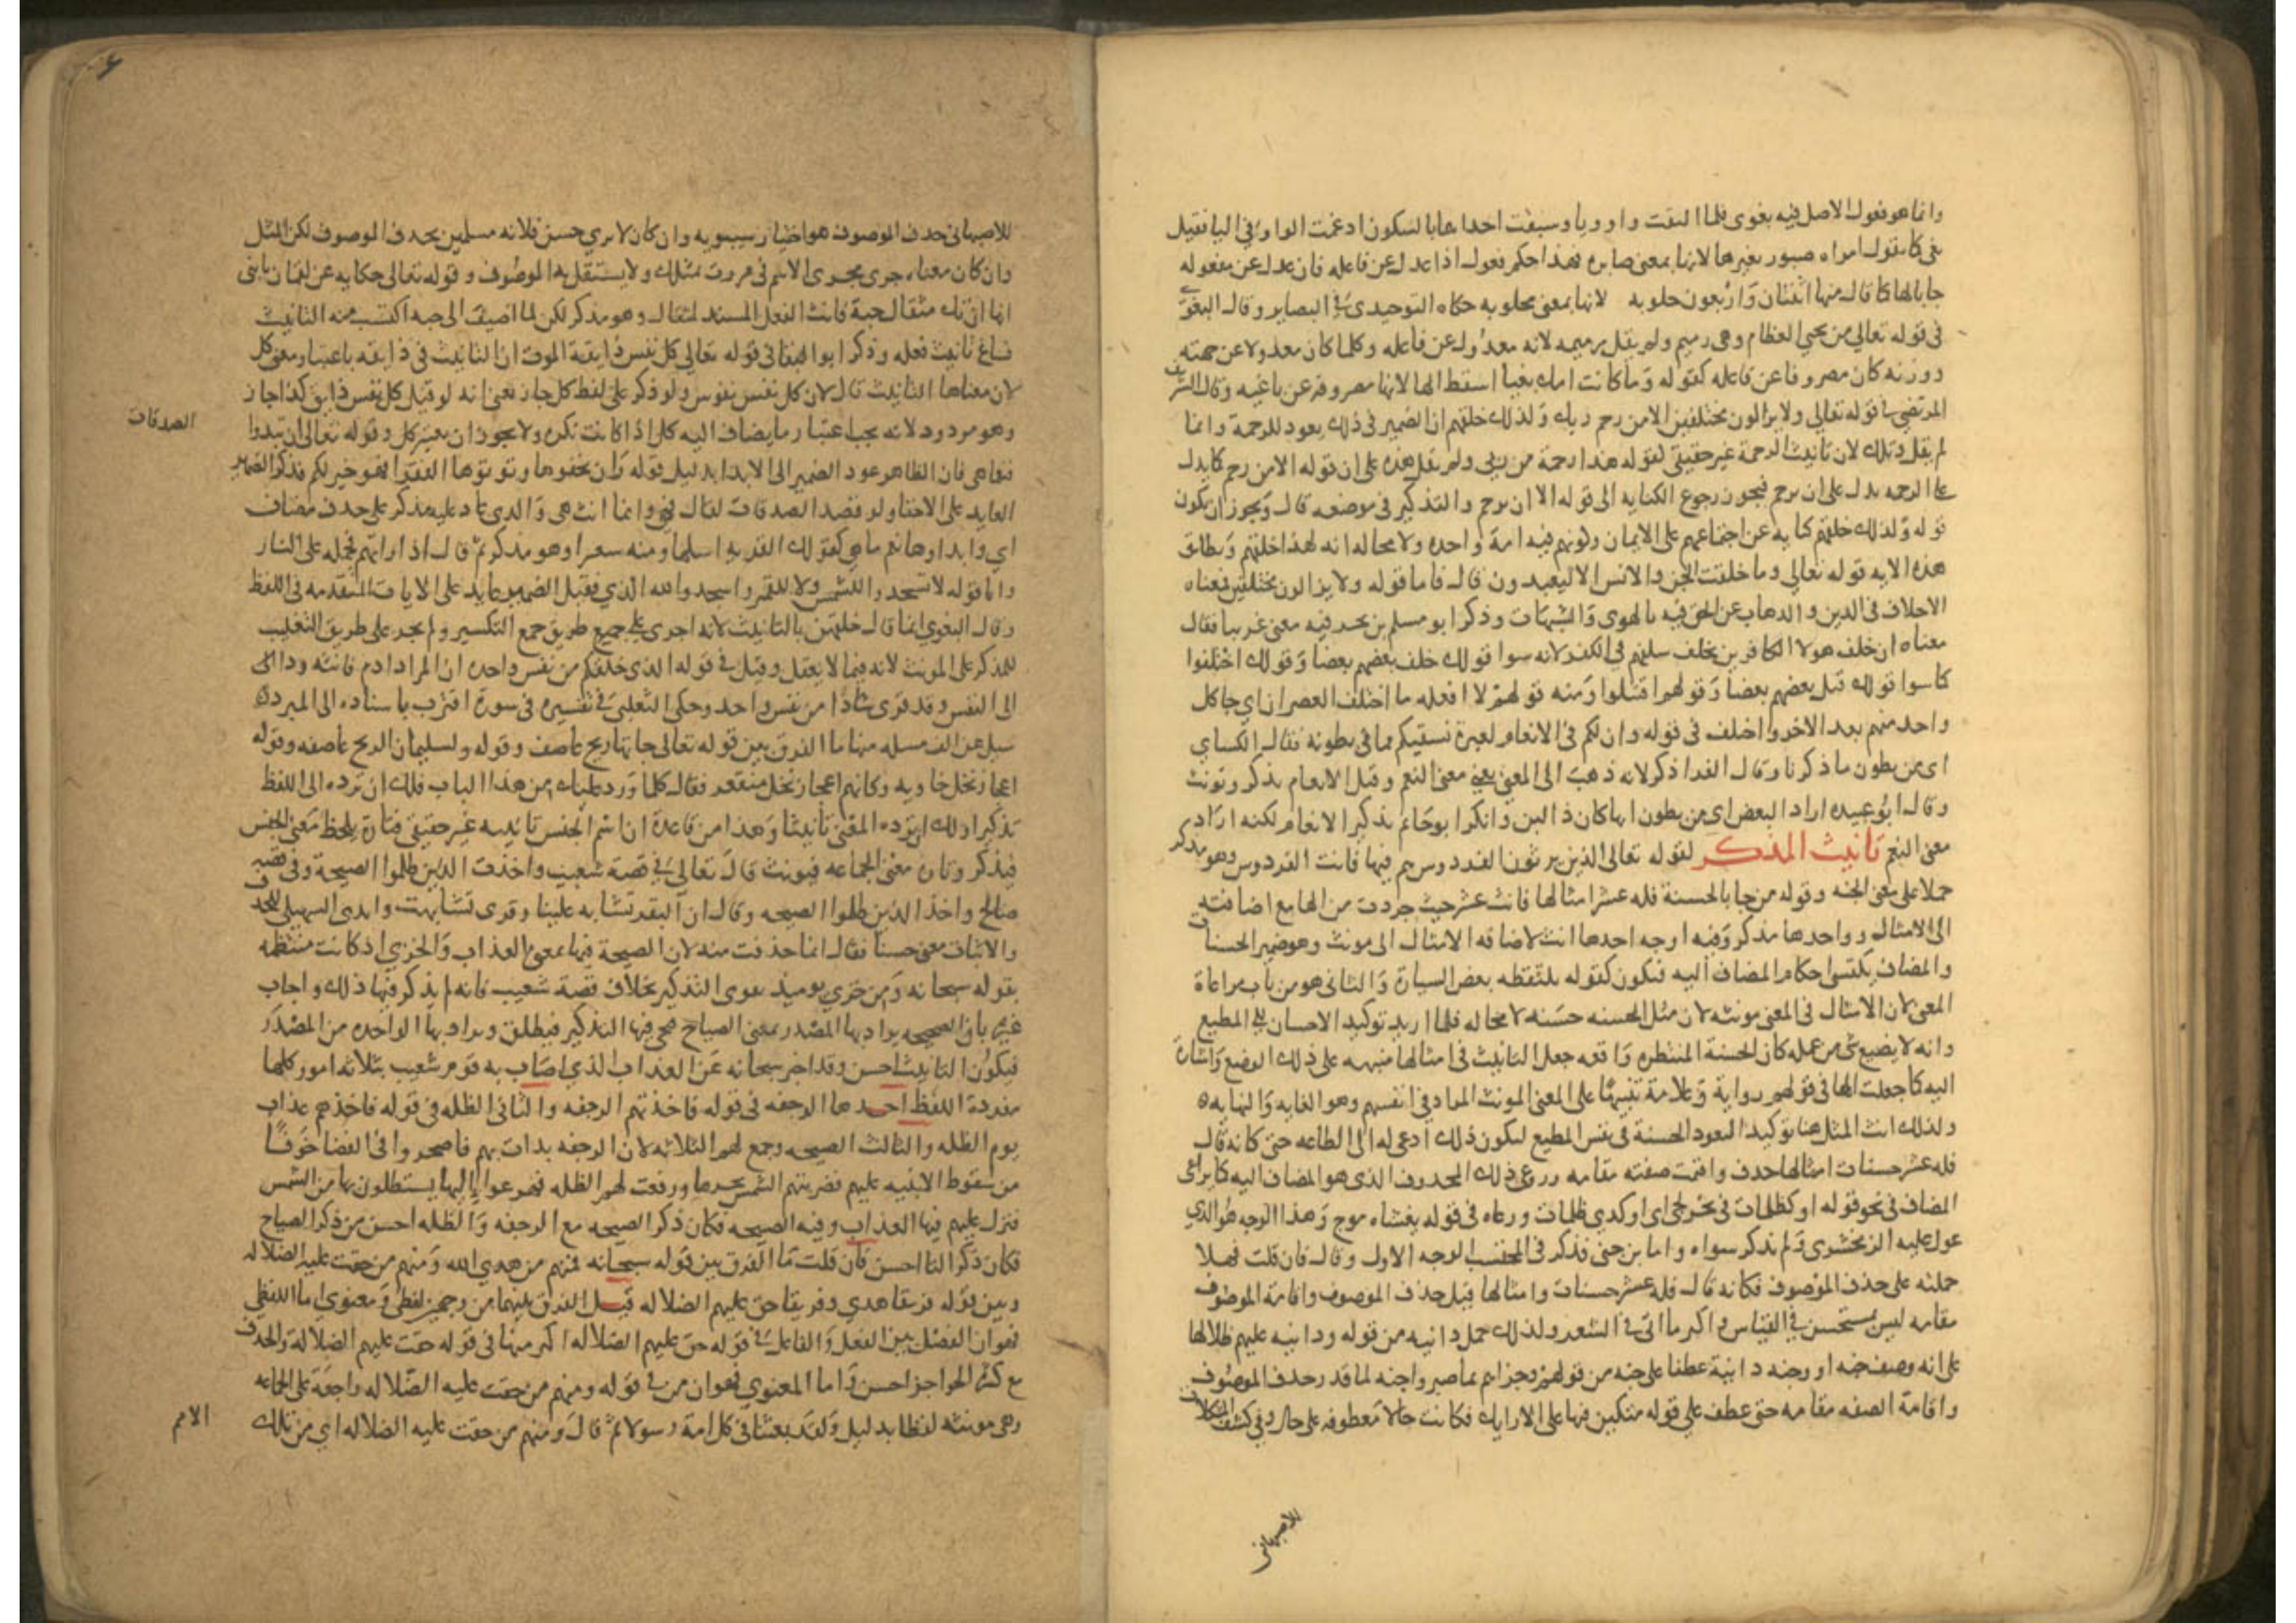 وانما هو فعول الاصل فيه بغوى فلما التقت واو ويا وسبقت احداهما بالسكون ادغمت الواو في اليا فقيل
بغى كما تقول امراه صبور بغير ها لانها بمعنى صابره فهذا حكم فعول اذا عدل عن فاعله فان عدل عن مفعوله
جا بالها كما قال منها اثنتان واربعون حلوبه لانها بمعنى محلوبه حكاه التوحيدي في البصاير وقال البغوي
في قوله تعالى من يحيي العظام وهى رميم ولم يقل رميمه لانه معدول عن فاعله وكلما كان معدولا عن جهته
ووزنه كان مصروفا عن فاعله كقوله وما كانت امك بغيا اسقط الها لانها مصروفه عن باغيه وقال الشريف
المرتضى في قوله تعالى ولا يزالون مختلفين الا من رحم ربك ولذلك خلقهم ان الضمير في ذلك يعود للرحمة وانما
لم يقل وتلك لان تانيث الرحمة غير حقيقي لقوله هذا رحمة من ربى ولم يقل هذه على ان قوله الا من رحم كما يدل
على الرحمه يدل على ان يرحم فيجوز رجوع الكنايه الى قوله الا ان يرحم والتذكير في موضعه قال ويجوز ان يكون
قوله ولذلك خلقهم كنايه عن اجتماعهم على الايمان وكونهم فيه امة واحده ولا محاله انه لهذا خلقهم ويطابق
هذه الايه قوله تعالى وما خلقت الجن والانس الا ليعبدون قال فاما قوله ولا يزالون مختلفين فمعناه
الاختلاف في الدين والذهاب عن الحق فيه بالهوى والشبهات وذكر ابو مسلم بن بحر فيه معنى غريبا فقال
معناه ان خلف هولا الكافرين يخلف سلفهم في الكفر لانه سوا قولك خلف بعضهم بعضا وقولك اختلفوا
كما سوا قولك قتل بعضهم بعضا وقولهم اقتتلوا ومنه قولهم لا افعله ما اختلف العصران اي جا كل
واحد منهم بعد الاخر واختلف في قوله وان لكم في الانعام لعبرة نسقيكم مما في بطونه فقال الكساي
اى من بطون ما ذكرنا وقال الفرا ذكر لانه ذهب الى المعنى يعني معنى النعم وقيل الانعام يذكر ويونث
وقال ابو عبيده اراد البعض اي من بطون ايها كان ذا لبن وانكر ابو حاتم تذكير الانعام لكنه اراد
معنى النعم تانيث المذكر كقوله تعالى الذين يرثون الفردوس هم فيها فانث الفردوس وهو مذكر
حملا على معنى الجنه وقوله من جا بالحسنة فله عشر امثالها فانث عشر حيث جردت من الها مع اضافته
الى الامثال وواحدها مذكر وفيه اوجه احدها انث لاضافه الامثال الى مونث وهو ضمير الحسنات
والمضاف يكتسب احكام المضاف اليه فيكون كقوله يلتقطه بعض السيارة والثانى هو من باب مراعاة
المعنى لان الامثال في المعنى مونثه لان مثل الحسنه حسنه لا محاله فلما اريد توكيد الاحسان الى المطيع
وانه لا يضيع شى من عمله كان الحسنة المنتظره واقعه جعل التانيث في امثالها منبهه على ذلك الوضع واشارة
اليه كما جعلت الها في قولهم رواية وعلامة تنبيها على المعنى المونث المراد في انفسهم وهو الغايه والنهايه
ولذلك انث المثل هنا توكيدا لتعود الحسنة في نفس المطيع ليكون ذلك ادعى له الى الطاعه حتى كانه قال
فله عشر حسنات امثالها حذف واقيمت صفته مقامه وروعي ذلك المحذوف الذى هو المضاف اليه كما يراعى
المضاف في نحو قوله او كظلمات في بحر لجى اى او كذى ظلمات وراعاه في قوله يغشاه موج وهذا الوجه هو الذي
عول عليه الزمخشرى ولم يذكر سواه واما ابن جني فذكر في المحتسب الوجه الاول وقال فان قلت فهلا
حملته على حذف الموصوف فكانه قال فله عشر حسنات وامثالها قيل حذف الموصوف واقامة الموصوف
مقامه ليس بمستحسن في القياس واكثر ما اتى في الشعر ولذلك حمل دانيه من قوله ودانيه عليهم ظلالها
على انه وصف جنه او وجنه دانية عطفا على جنه من قولهم وجزاهم بما صبروا جنه لما قدر حذف الموصوف
واقامة الصفه مقامه حتى عطف على قوله متكين فيها على الارايك فكانت حالا معطوفه على حال وفي كشف المشكلات
للاصبهانى
للاصبهانى حذف الموصوف هو اختيار سيبويه وان كان لا يري حسن فلانه مسلمين بحذف الموصوف لكن المثل
وان كان معناه جرى مجرى الاسم في مررت بمثلك ولا يستقل به الموصوف وقوله تعالى حكايه عن لقمان يابنى
انها ان تك مثقال حبة فانث الفعل المسند لمثقال وهو مذكر لكن لما اضيف الى حبه اكتسب منه التانيث
فساغ تانيث فعله وذكر ابو البقا في قوله تعالى كل نفس ذايقة الموت ان التانيث في ذايقه باعتبار معنى كل
لان معناها التانيث قال لان كل نفس نفوس ولو ذكر على لفظ كل جاز يعنى انه لو قيل كل نفس ذايق كذا جاز
وهو مردود لانه يجب اعتبار ما يضاف اليه كل اذا كانت نكره ولا يجوز ان يعتبر كل وقوله تعالى ان تبدوا
الصدقات
فنعما هى فان الظاهر عود الضمير الى الابدا بدليل قوله وان تخفوها وتوتوها الفقرا فهو خير لكم فذكر الضمير
العايد على الاخفا ولو قصد الصدقات لقال فهى وانما انث هى والذى عاد عليه مذكر على حذف مضاف
اي وابداوها نعم ما هى كقولك القريه اسالها ومنه سعيرا وهو مذكر ثم قال اذا راتهم فحمله على النار
واما قوله لا تسجدوا للشمس ولا للقمر واسجدوا لله الذي فقيل الضمير عايد على الايات المتقدمه في اللفظ
وقال البغوي انما قال خلقهن بالتانيث لانه اجرى على جميع طريق جمع التكسير ولم يجر على طريق التغليب
للمذكر على المونث لانه فيما لا يعقل وقيل في قوله الذى خلقكم من نفس واحده ان المراد ادم فانثه ردا الى
الى النفس وقد قرى شاذا من نفس واحد وحكى الثعلبي في تفسيره في سورة اقترب باسناده الى المبرد
سيل عن الف مسله منها ما الفرق بين قوله تعالى جاتها ريح عاصف وقوله ولسليمان الريح عاصفه وقوله
اعجاز نخل خاويه وكانهم اعجاز نخل منقعر فقال كلما ورد عليك من هذا الباب فلك ان ترده الى اللفظ
تذكيرا ولك ان ترده المعنى تانيثا وهذا من قاعدة ان اسم الجنس تانيثه غير حقيقي فتارة يلحظ معنى الجنس
فيذكر وتارة معنى الجماعه فيونث قال تعالى في قصة شعيب واخذت الذين ظلموا الصيحة وفي قصة
صالح واخذ الذين ظلموا الصيحه وقال ان البقر تشابه علينا وقرى تشابهت وابدى السهيلي للحذف
والاثبات معنى حسنا فقال انما حذفت منه لان الصيحة فيها بمعنى العذاب والخزي اذ كانت منتظمه
بقوله سبحانه ومن خزي يوميذ فقوى التذكير بخلاف قصة شعيب فانه لم يذكر فيها ذلك واجاب
غيره بان الصيحه يراد بها المصدر بمعنى الصياح فيجى فيها التذكير فيطلق ويراد بها الواحده من المصدر
فيكون التانيث احسن وقد اخبر سبحانه عن العذاب الذي اصاب به قوم شعيب بثلاثه امور كلها
مفردة اللفظ احدها الرجفه في قوله فاخذتهم الرجفه والثانى الظله في قوله فاخذهم عذاب
يوم الظله والثالث الصيحه وجمع لهم الثلاثه لان الرجفه بدات بهم فاصحروا فى الفضا خوفا
من سقوط الابنيه عليهم فضربتهم الشمس بحرها ورفعت لهم الظله فهرعوا اليها يستظلون بها من الشمس
فنزل عليهم فيها العذاب وفيه الصيحه فكان ذكر الصيحه مع الرجفه والظله احسن من ذكر الصياح
فكان ذكر التا احسن فان قلت ما الفرق بين قوله سبحانه فمنهم من هدي الله ومنهم من حقت عليه الضلاله
وبين قوله فريقا هدي وفريقا حق عليهم الضلاله قيل الفرق بينهما من وجهين لفظى ومعنوى اما اللفظي
فهو ان الفصل بين الفعل والفاعل في قوله حق عليهم الضلاله اكثر منها في قوله حقت عليهم الضلالة والحذف
مع كثره الحواجز احسن واما المعنوي فهو ان من في قوله ومنهم من حقت عليه الضلاله راجعة على الجماعه
وهى مونثه لفظا بدليل ولقد بعثنا في كل امة رسولا ثم قال ومنهم من حقت عليه الضلاله اي من تلك
الامم